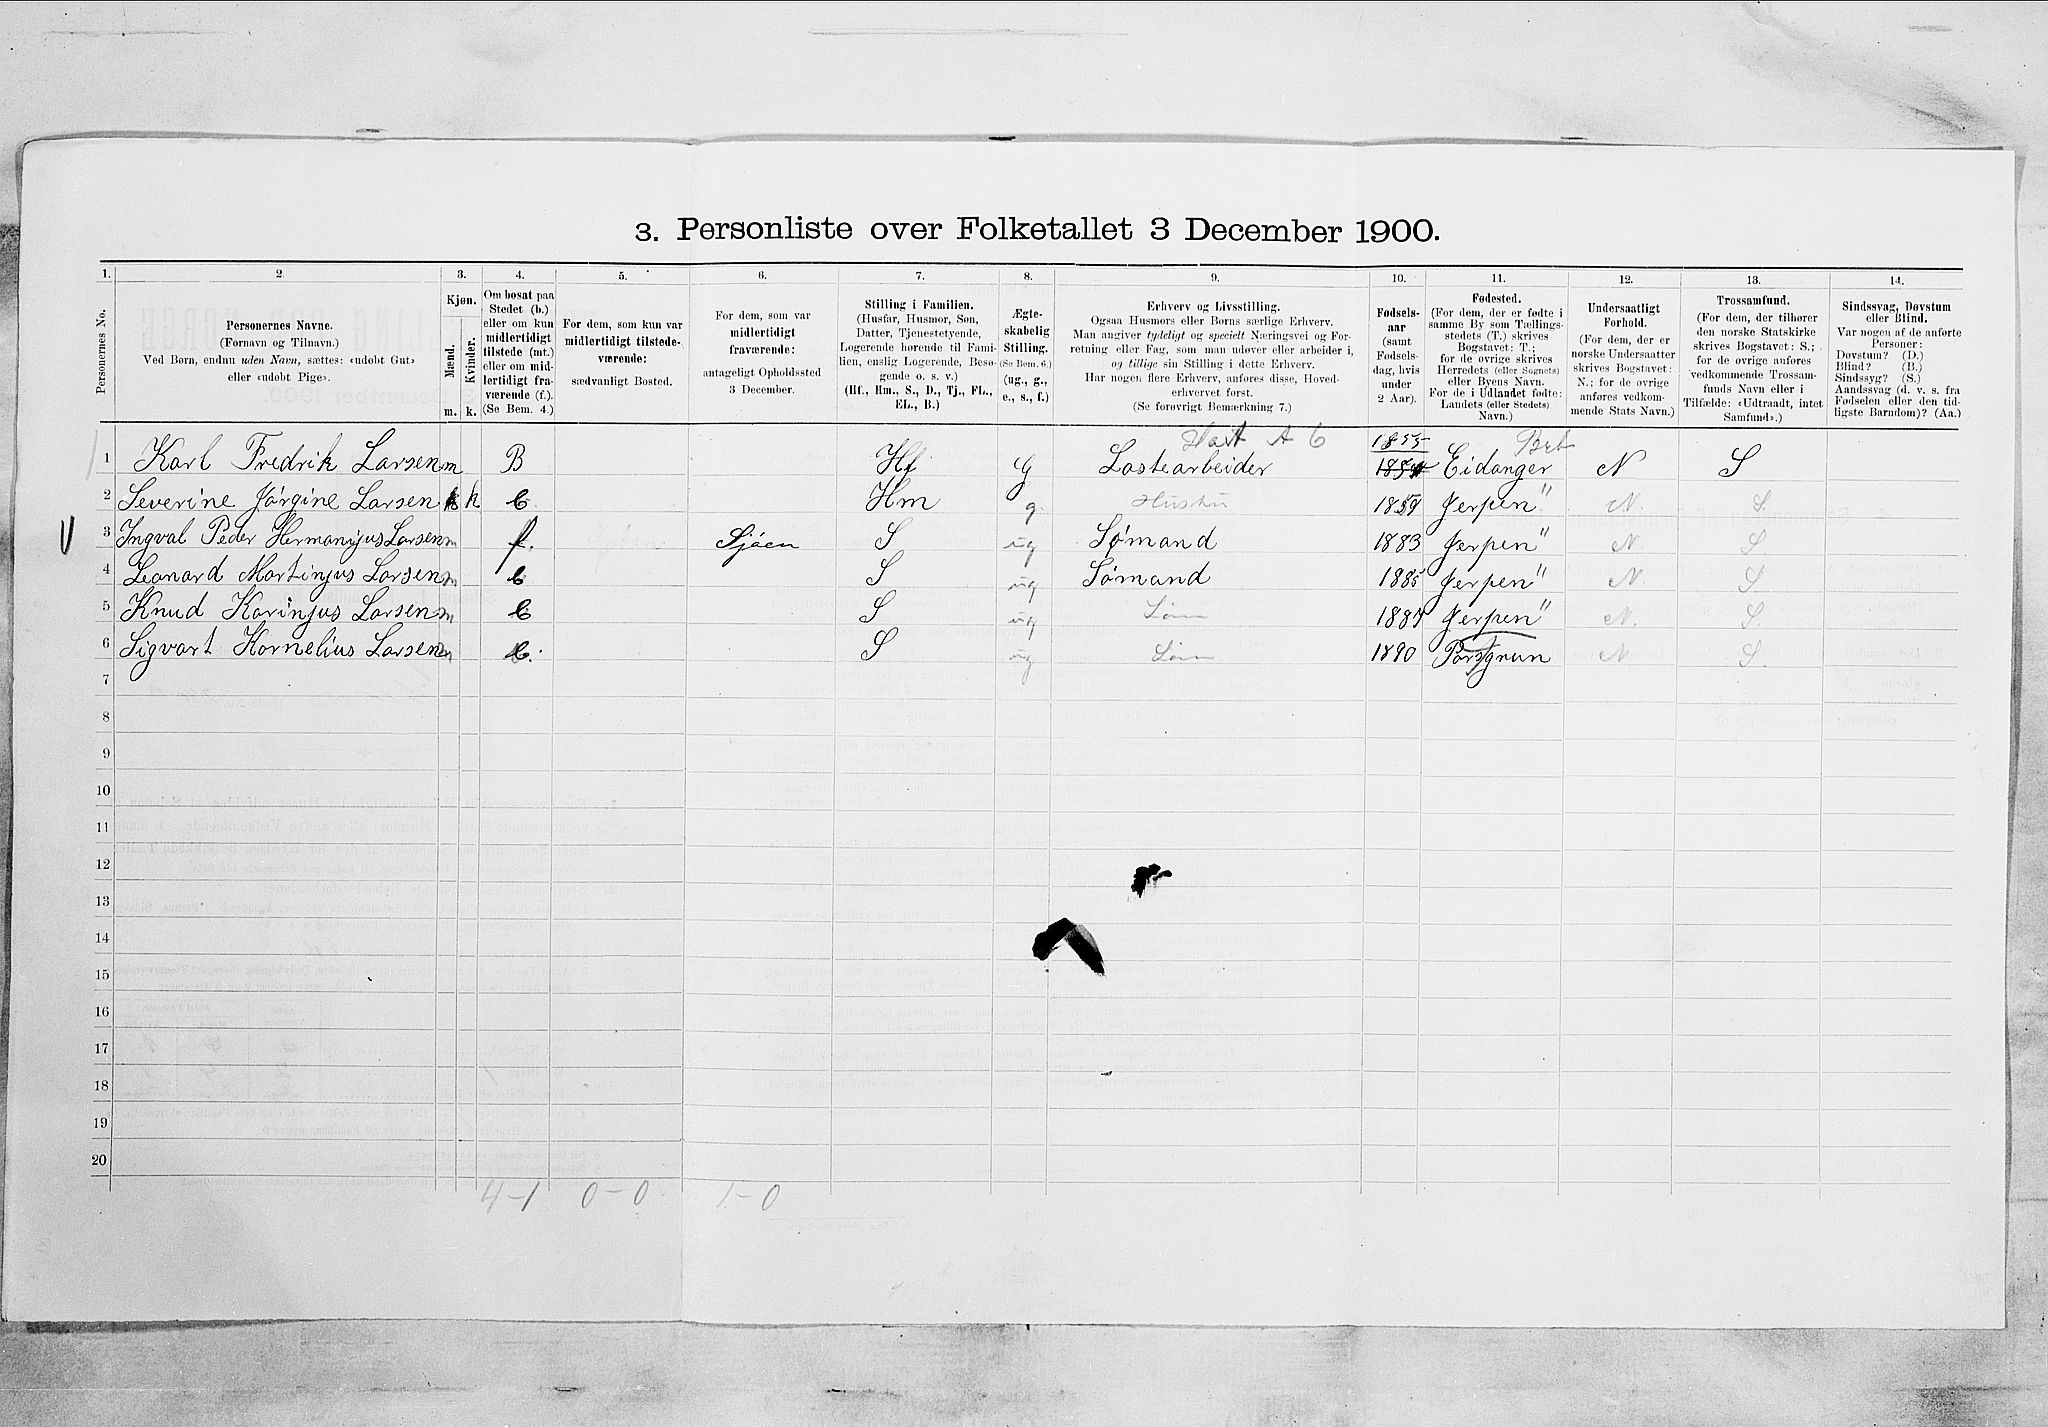 3. Personliste over Folketallet 3 December 1900.
1. 2. 3. 4. 5. 6. 7. 8. 9. 10. 11. 12. 13. 14.
Personernes No.
Personernes Navne.
(Fornavn og Tilnavn.)
Ved Børn, endnu uden Navn, sættes: «udøbt Gut»
eller «udøbt Pige».
Kjøn.
Mænd.
Kvinder.
m. k.
Om bosat paa
Stedet (b.)
eller om kun
midlertidigt
tilstede (mt.)
eller om mid-
lertidigt fra-
værende (f.).
(Se Bem. 4.)
For dem, som kun var
midlertidigt tilstede-
værende:
sædvanligt Bosted.
For dem, som var
midlertidigt
fraværende:
antageligt Opholdssted
3 December.
Stilling i Familien.
(Husfar, Husmor, Søn,
Datter, Tjenestetyende,
Logerende hørende til Fami-
lien, enslig Logerende, Besø-
gende o. s. v.)
(Hf., Hm., S., D., Tj., FL.,
EL., B.)
Ægte-
skabelig
Stilling.
(Se Bem. 6.)
(ug., g.,
e., s., f.)
Erhverv og Livsstilling.
Ogsaa Husmors eller Børns særlige Erhverv.
Man angiver tydeligt og specielt Næringsvei og For-
retning eller Fag, som man udøver eller arbeider i,
og tillige sin Stilling i dette Erhverv.
Har nogen flere Erhverv, anføres disse, Hoved-
erhvervet først.
(Se forøvrigt Bemærkning 7.)
Fødsels-
aar
(samt
Fødsels-
dag, hvis
under
2 Aar).
Fødested.
(For dem, der er fødte i
samme By som Tællings-
stedets (T.) skrives
Bogstavet: T.;
for de øvrige skrives
Herredets (eller Sognets)
eller Byens Navn.
For de i Udlandet fødte:
Landets (eller Stedets)
Navn.)
Undersaatligt
Forhold.
(For dem, der er
norske Undersaatter
skrives Bogstavet:
N.; for de øvrige
anføres vedkom-
mende Stats Navn.)
Trossamfund.
(For dem, der tilhører
den norske Statskirke
skrives Bogstavet: S.;
for de øvrige anføres
vedkommende Trossam-
funds Navn eller i
Tilfælde: «Udtraadt, intet
Samfund».)
Sindssvag, Døvstum
eller Blind.
Var nogen af de anførte
Personer:
Døvstum? (D.)
Blind? (B.)
Sindssyg? (S.)
Aandssvag (d. v. s. fra
Fødselen eller den tid-
ligste Barndom)? (Aa.)
1855
1 Karl Fredrik Larsen m B Hf G Lastearbeider 1854 Eidanger N S
2 Severine Jørgine Larsen k b. Hm g. Hustru 1859 Jerpen " N. S.
3 Ingval Peder Hermanijus Larsen m f. Sjøen S ug Sømand 1883 Jerpen " N. S
4 Leonard Martinjus Larsen m b S ug Sømand 1885 Jerpen " N. S
5 Knud Karinjus Larsen m b S ug Søn 1887 Jerpen " N. S
6 Sigvart Kornelius Larsen m b. S ug Søn 1890 Porsgrun N S.
7
8
9
10
11
12
13
14
15
16
17
18
19
20
4-1 0-0 1-0